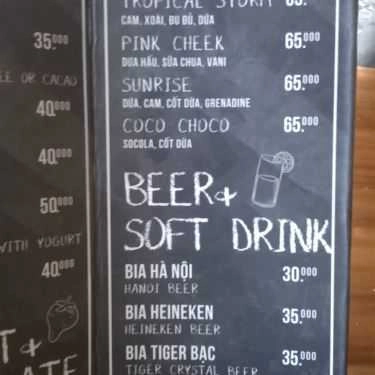 35.000
EE OR CACAO
40.000
40.000
50.000
WITH YOGURT
40.000
T +
ATE
TROPICAL STORM 65.
CAM, XOÀI, ĐU ĐỦ, DỨA
PINK CHEEK 65.000
DƯA HẤU, SỮA CHUA, VANI
SUNRISE 65.000
DỨA, CAM, CỐT DỪA, GRENADINE
COCO CHOCO 65.000
SOCOLA, CỐT DỪA
BEER+
SOFT DRINK
BIA HÀ NỘI 30.000
HANOI BEER
BIA HEINEKEN 35.000
HEINEKEN BEER
BIA TIGER BẠC 35.000
TIGER CRYSTAL BEER